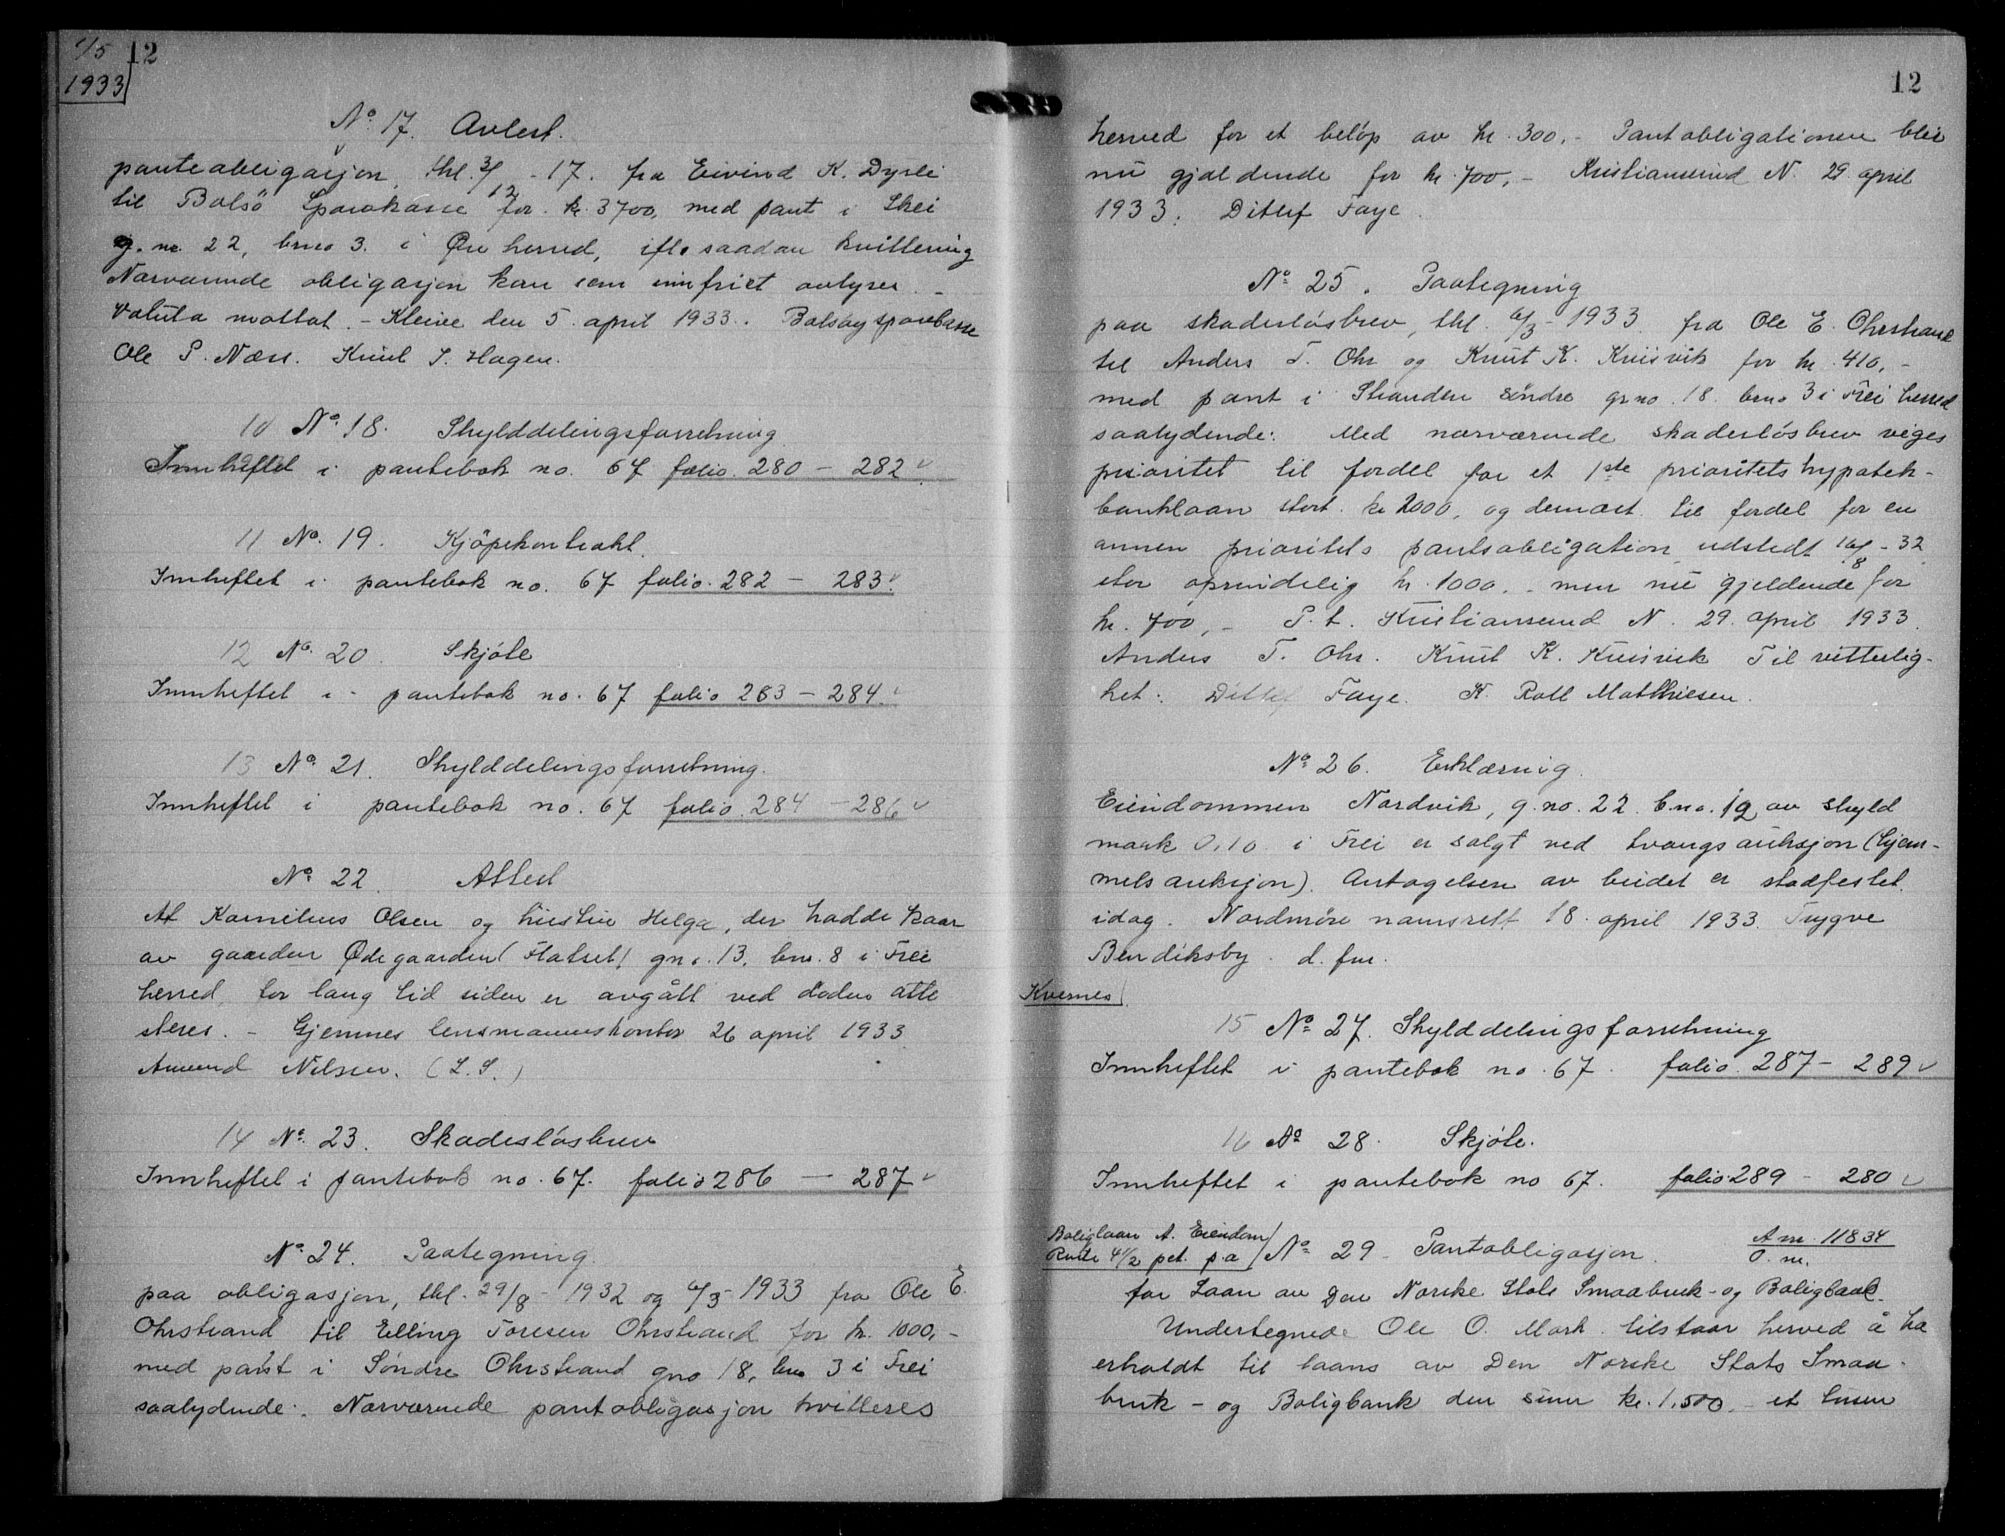 1/5 12
1933
No. 17. Avlest.
panteobligasjon, thl. 3/12 - 17. fra Eivind K. Dyrli
til Bolsö Sparekasse for kr. 3700, med pant i Skei
g. nr. 22, brno 3. i Øre herred, ifl. saadan kvittering
Nærværende obligasjon kan som innfriet avlyses. -
Valuta mottat. - Kleive den 5. april 1933. Bolsøy sparebasse
Ole P. Næss. Knut S. Hagen.
10 No. 18. Skylddelingsforretning
Innheftet i pantebok no. 67 folio. 280 - 282 v
11 No. 19. Kjöpekontrakt.
Innheftet i pantebok no. 67 folio. 282 - 283 v
12 No. 20. Skjöte
Innheftet i pantebok no. 67 folio 283 - 284. v
13 No. 21. Skylddelingsforretning.
Innheftet i pantebok no. 67 folio. 284 - 286 v
No. 22. Attest
At Kornelius Olsen og hustru Helga, der hadde kaar
av gaarden Ødegaarden (Flatset) gno. 13, bno. 8 i Frei
herred for lang tid siden er avgått ved døden atte
steres. - Gjemnes lensmannskontor 26 april 1933
Amund Nilsen. (L.S.)
14 No. 23. Skadesløsbrev
Innheftet i pantebok no. 67. folio 286 - 287 v
No. 24. Paategning
paa obligasjon, thl. 29/8 - 1932 og 6/3 - 1933 fra Ole E.
Ohrstrand til Elling Toresen Ohrstrand for kr. 1000,-
med pant i Søndre Ohrstrand gno 18, bno 3 i Frei
saalydende: Nærværende pantobligasjon kvitteres
12
herved for et beløp av kr. 300,- Pantobligationen blir
nu gjældende for kr. 700,- Kristiansund N. 29. april
1933. Ditlef Faye.
No. 25. Paategning
paa skadesløsbrev, thl. 6/3 - 1933 fra Ole E. Ohrstrand
til Anders T. Ohr og Knut K. Kruisvik for kr. 410,-
med pant i Stranden söndre gno. 18 bno 3 i Frei herred
saalydende: Med nærværende skadesløsbrev viges
prioritet til fordel for et 1ste prioritets hypotek-
banklaan stort kr 2000, og dernæst til fordel for en
annen prioritets pantobligation utstedt 16/8 - 32
stor oprindelig kr. 1000.- men nu gjeldende for
kr. 700,- P.t. Kristiansund N. 29. april 1933.
Anders T. Ohr. Knut K. Kruisvik Til vitterlig-
het: Ditlef Faye. K. Roll Matthiesen.
No. 26. Erklæring.
Eiendommen Nordvik, g.no. 22 b.no. 12 av skyld
mark 0,10 i Frei er solgt ved tvangsauksjon (hjem-
melsauksjon). Antagelsen av budet er stadfestet
idag. Nordmöre namsrett 18. april 1933. Trygve
Bendiksby d. fm.
Kvernes
15 No. 27. Skylddelingsforretning
Innheftet i pantebok no. 67. folio. 287 - 289 v
16 No 28. Skjöte.
Innheftet i pantebok no 67. folio 289 - 280 v
Boliglaan A. Eiendom
Rente 4 1/2 pct. p.a No. 29. Pantobligasjon. A.m. 11834
O. m.
for Laan av Den Norske Stats Smaabruk- og Boligbank.
Undertegnede Ole O. Mork tilstaar herved å ha
erholdt til laans av Den Norske Stats Smaa-
bruk - og Boligbank den sum kr. 1.500,- et tusen